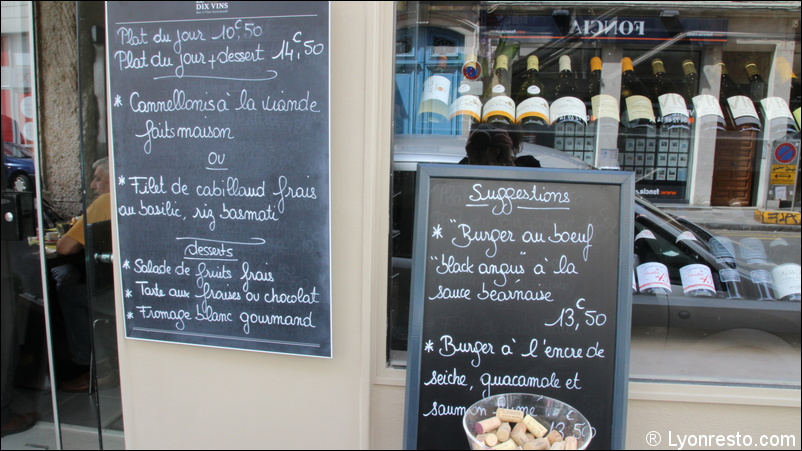 DIX VINS
Plat du jour 10€,50
Plat du jour + dessert 14€,50
* Cannellonis à la viande
faits maison
ou
* Filet de cabillaud frais
au basilic, riz basmati
desserts
* Salade de fruits frais
* Tarte aux fraises ou chocolat
* Fromage blanc gourmand
Suggestions
* "Burger au boeuf
"black angus" à la
sauce béarnaise
13€,50
* Burger à l'encre de
seiche, guacamole et
saumon fumé 13€,50
FONCIA
® Lyonresto.com